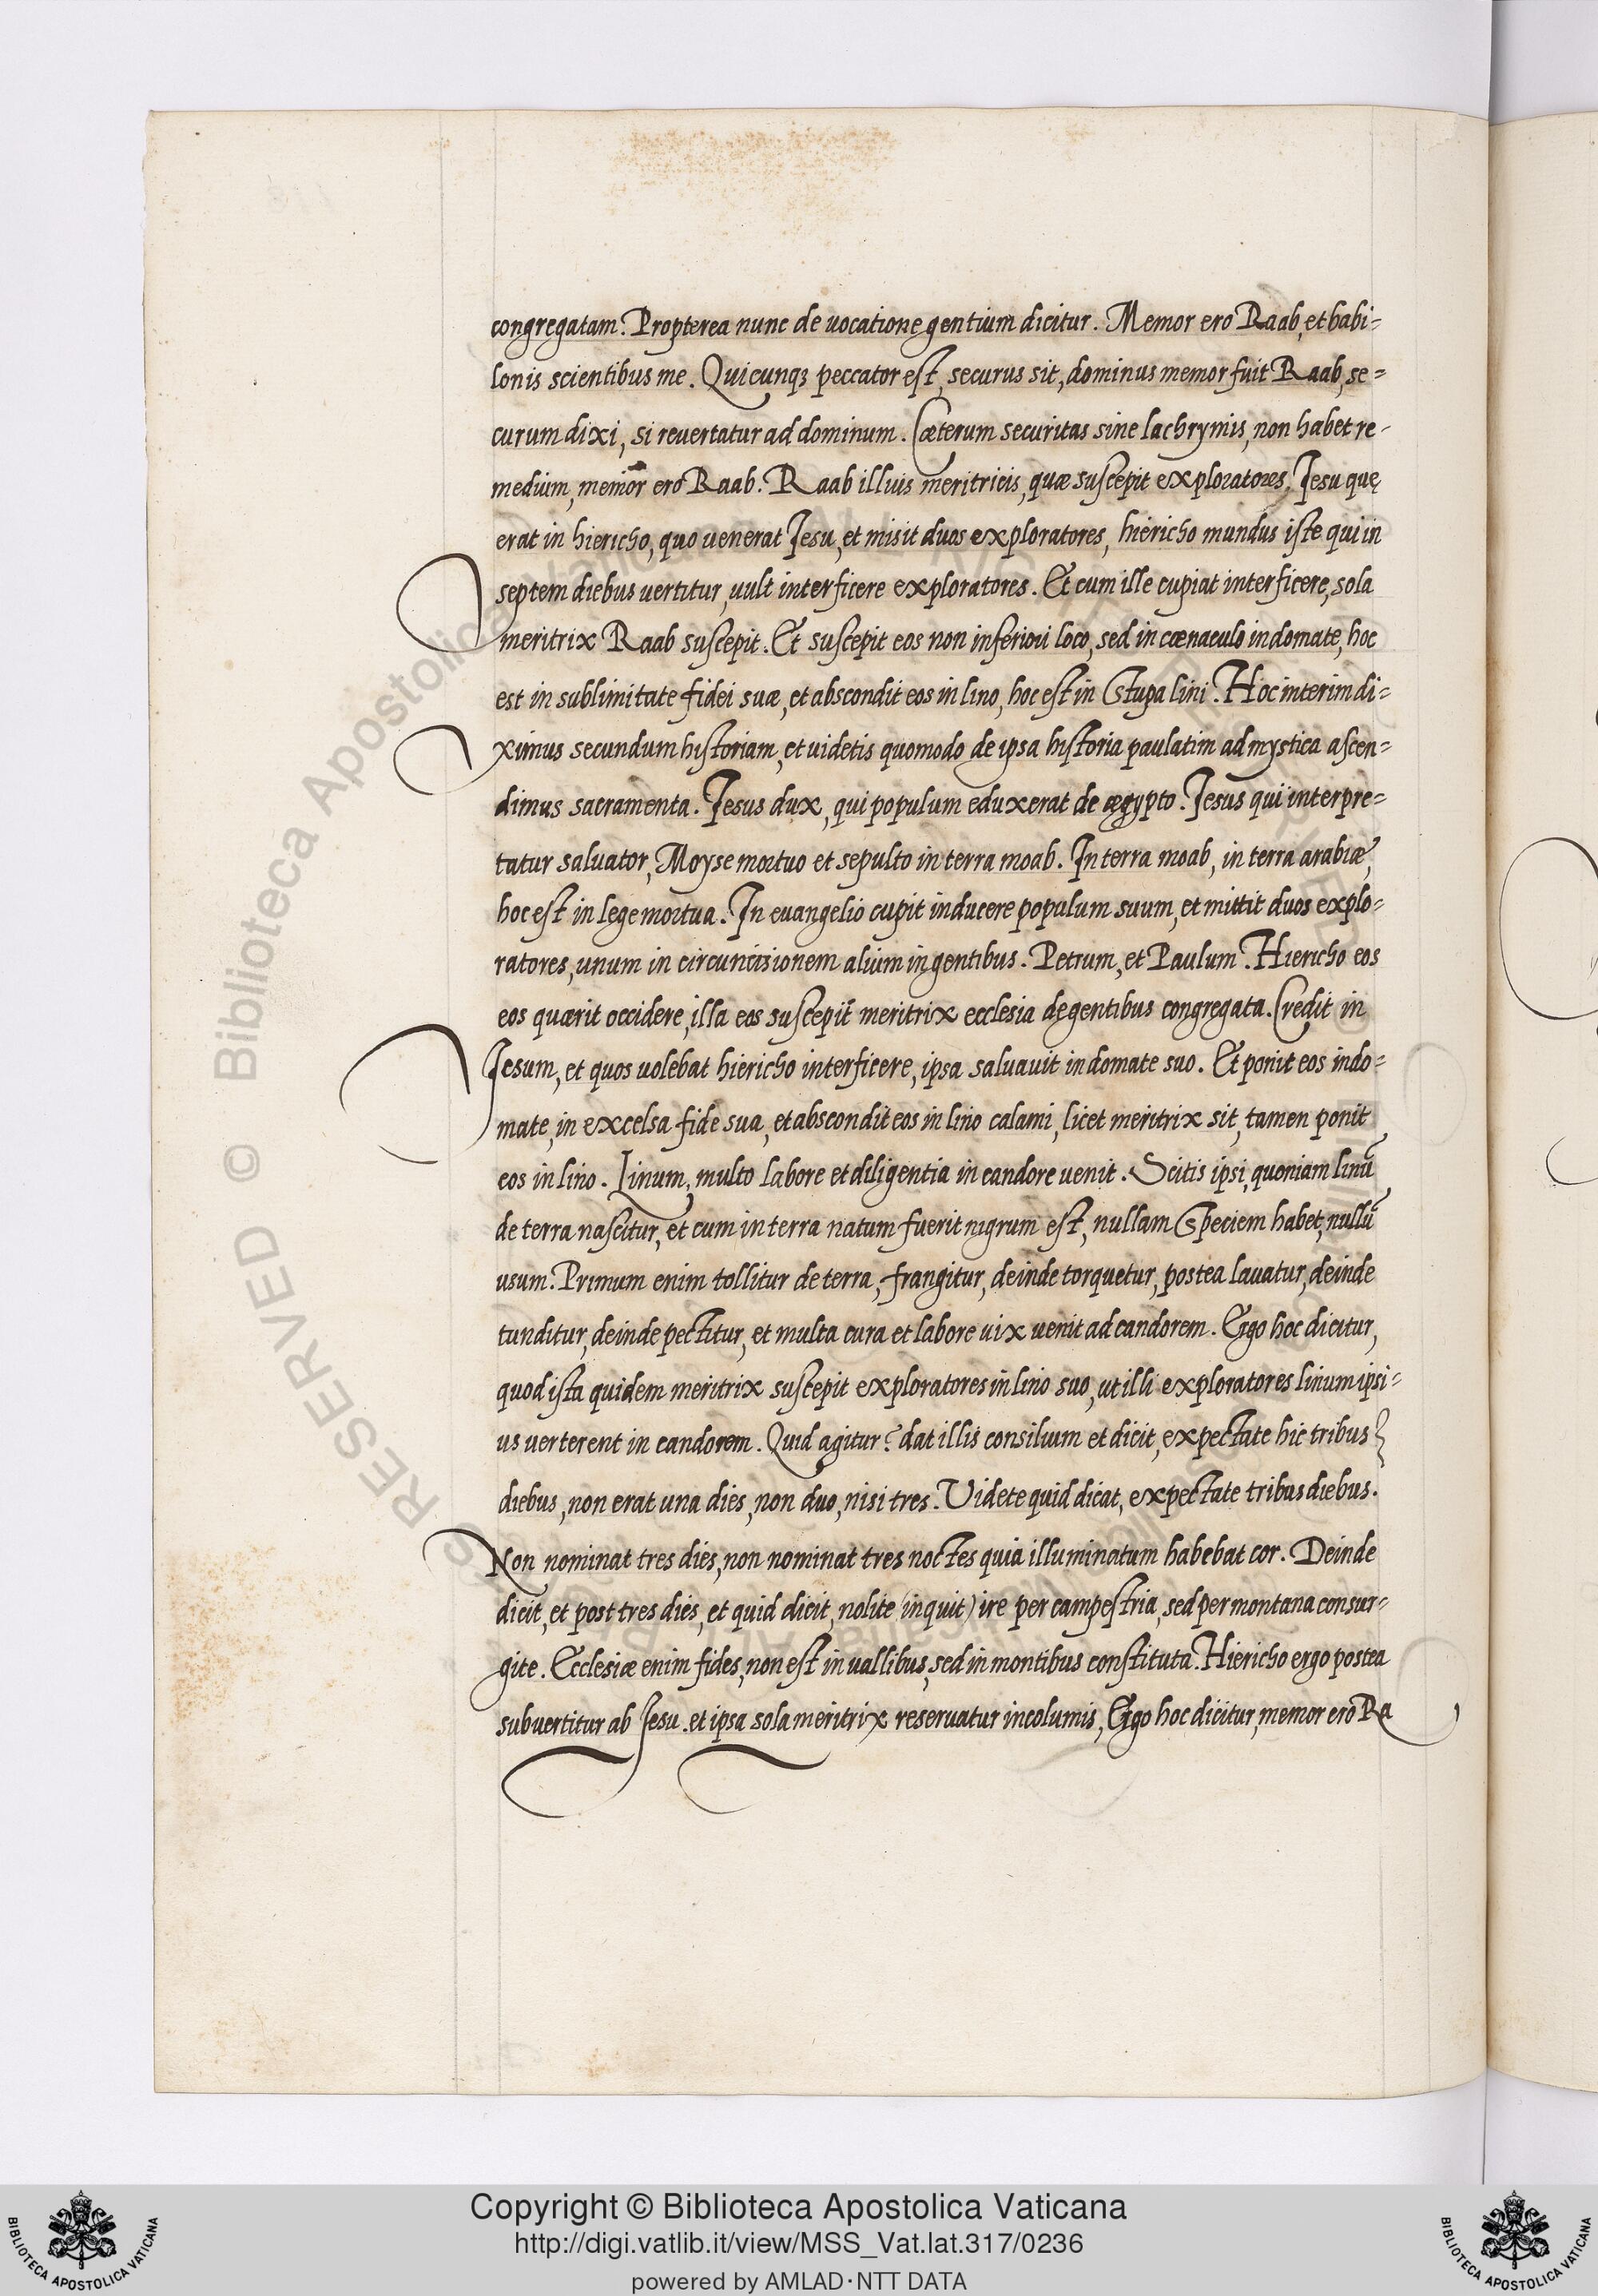 congregatam. Propterea nunc de uocatione gentium dicitur. Memor ero Raab, et babi=
lonis scientibus me. Quicunqꝫ peccator est, securus sit, dominus memor fuit Raab, se=
curum dixi, si reuertatur ad dominum. Cæterum securitas sine lachrymis, non habet re-
medium, memor ero Raab. Raab illius meritricis, quæ suscepit exploratores, Jesu quę
erat in hiericho, quo uenerat Jesu, et misit duos exploratores, hiericho mundus iste qui in
septem diebus uertitur, uult interficere exploratores. Et cum ille cupiat interficere, sola
meritrix Raab suscepit. Et suscepit eos non inferiori loco, sed in cænaculo in domate, hoc
est in sublimitate fidei suæ, et abscondit eos in lino, hoc est in stupa lini. Hoc interim di=
ximus secundum historiam, et uidetis quomodo de ipsa historia paulatim ad mystica ascen=
dimus sacramenta. Jesus dux, qui populum eduxerat de ægypto. Jesus qui interpre=
tatur saluator, Moyse mortuo et sepulto in terra moab. In terra moab, in terra arabiæ,
hoc est in lege mortua. In euangelio cupit inducere populum suum, et mittit duos explo=
ratores, unum in circuncisionem alium in gentibus. Petrum, et Paulum. Hiericho eos
eos quærit occidere, illa eos suscepit meritrix ecclesia de gentibus congregata. Credit in
Jesum, et quos uolebat hiericho interficere, ipsa saluauit in domate suo. Et ponit eos in do=
mate, in excelsa fide sua, et abscondit eos in lino calami, licet meritrix sit, tamen ponit
eos in lino. Linum, multo labore et diligentia in candore uenit. Scitis ipsi, quoniam linū
de terra nascitur, et cum in terra natum fuerit nigrum est, nullam speciem habet, nullū
usum. Primum enim tollitur de terra, frangitur, deinde torquetur, postea lauatur, deinde
tunditur, deinde pectitur, et multa cura et labore uix uenit ad candorem. Ergo hoc dicitur,
quod ista quidem meritrix suscepit exploratores in lino suo, ut illi exploratores linum ipsi=
us uerterent in candorem. Quid agitur? dat illis consilium et dicit, expectate hic tribus
diebus, non erat una dies, non duo, nisi tres. Uidete quid dicat, expectate tribus diebus.
Non nominat tres dies, non nominat tres noctes quia illuminatum habebat cor. Deinde
dicit, et post tres dies, et quid dicit, nolite (inquit) ire per campestria, sed per montana consur=
gite. Ecclesiæ enim fides, non est in uallibus, sed in montibus constituta. Hiericho ergo postea
subuertitur ab Jesu. et ipsa sola meritrix reseruatur incolumis, Ergo hoc dicitur, memor ero Ra
© Biblioteca Apostolica Vaticana ALL RIGHTS RESERVED
Copyright © Biblioteca Apostolica Vaticana
http://digi.vatlib.it/view/MSS_Vat.lat.317/0236
powered by AMLAD·NTT DATA
BIBLIOTECA APOSTOLICA VATICANA
BIBLIOTECA APOSTOLICA VATICANA